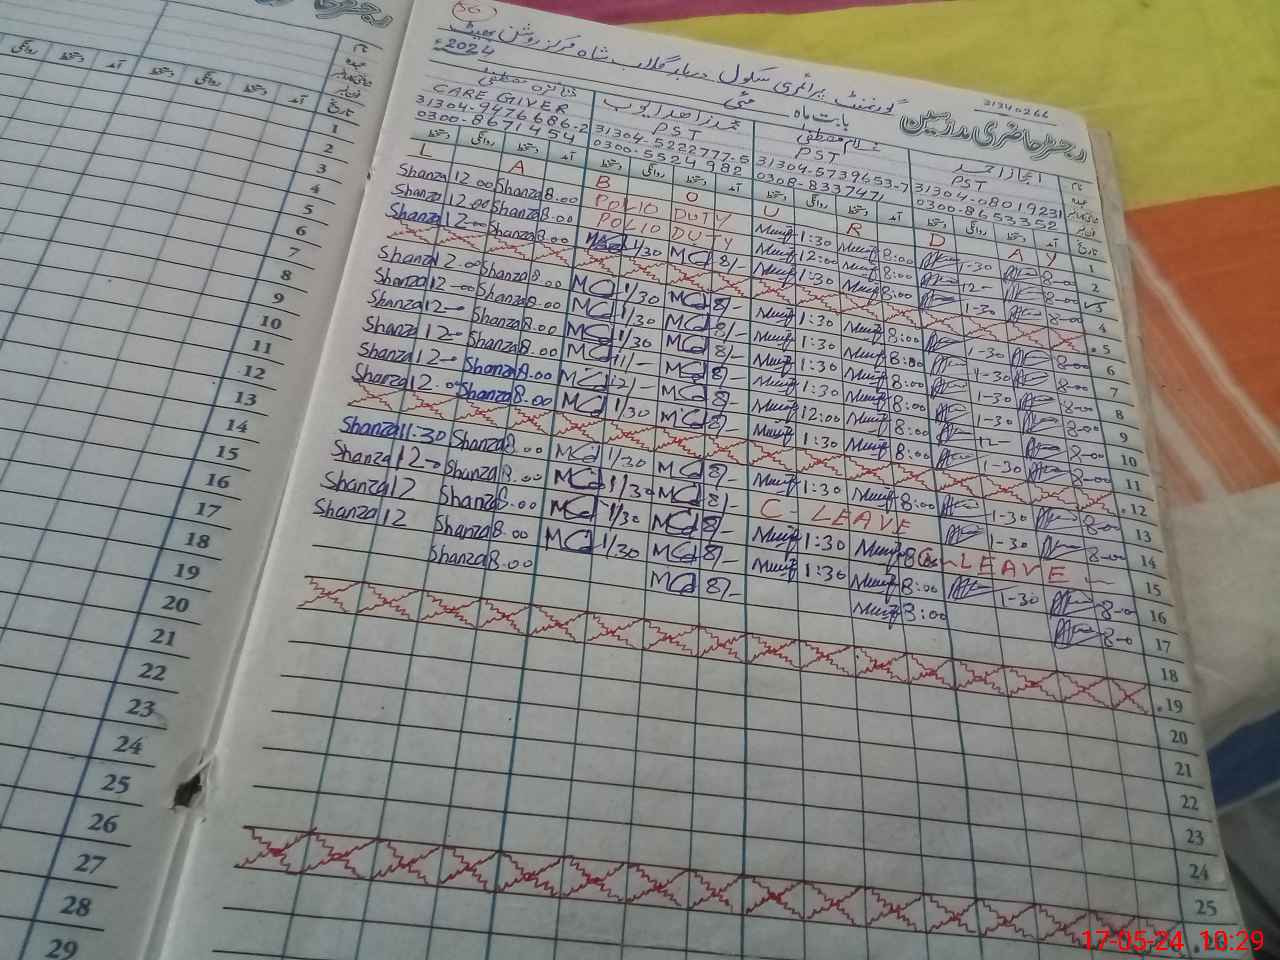 56
گورنمنٹ پرائمری سکول دربار گلاب شاہ مرکز روشن بھیٹ
2024
31340266
رجسٹر حاضری مدارسین
بابت ماہ مئی
اعجاز احمد
PST
31304-0801923-1
0300-8653352
غلام مصطفیٰ
PST
31304-5739653-7
0308-8337471
محمد زاہد ایوب
PST
31304-5222777-5
0300-5524982
CARE GIVER
31304-9476686-2
0300-8671454
نام
عہدہ
تاریخ
آمد دستخط روانگی دستخط
L A B O U R D A Y
Shanza 12.00 Shanza 8.00 POLIO DUTY 1:30 8:00 1-30 8-00
Shanza 12.00 Shanza 8.00 POLIO DUTY 12:00 8:00 12- 8-00
Shanza 12-00 Shanza 8.00 1/30 8/- 1:30 8:00 1-30 8-00
Shanza 12.00 Shanza 8.00 1/30 8/- 1:30 8:00 1-30 8-00
Shanza 12-00 Shanza 8.00 1/30 8/- 1:30 8:00 1-30 8-00
Shanza 12-0 Shanza 8.00 11/- 8/- 1:30 8:00 1-30 8-00
Shanza 12-0 Shanza 8.00 12/- 8/- 12:00 8:00 12- 8-00
Shanza 12.00 Shanza 8.00 1/30 8/- 1:30 8:00 1-30 8-00
Shanza 11:30 Shanza 8.00 1/30 8/- 1:30 8:00 1-30 8-00
Shanza 12-0 Shanza 8.00 1/30 8/- C- LEAVE 1-30 8-00
Shanza 12 Shanza 8.00 1/30 8/- 1:30 8:00 C-LEAVE
Shanza 12 Shanza 8.00 1/30 8/- 1:30 8:00 1-30 8-00
Shanza 8.00 8/- 8:00 8-00
1
2
3
4
5
6
7
8
9
10
11
12
13
14
15
16
17
18
19
20
21
22
23
24
25
1
2
3
4
5
6
7
8
9
10
11
12
13
14
15
16
17
18
19
20
21
22
23
24
25
26
27
28
29
17-05-24 10:29